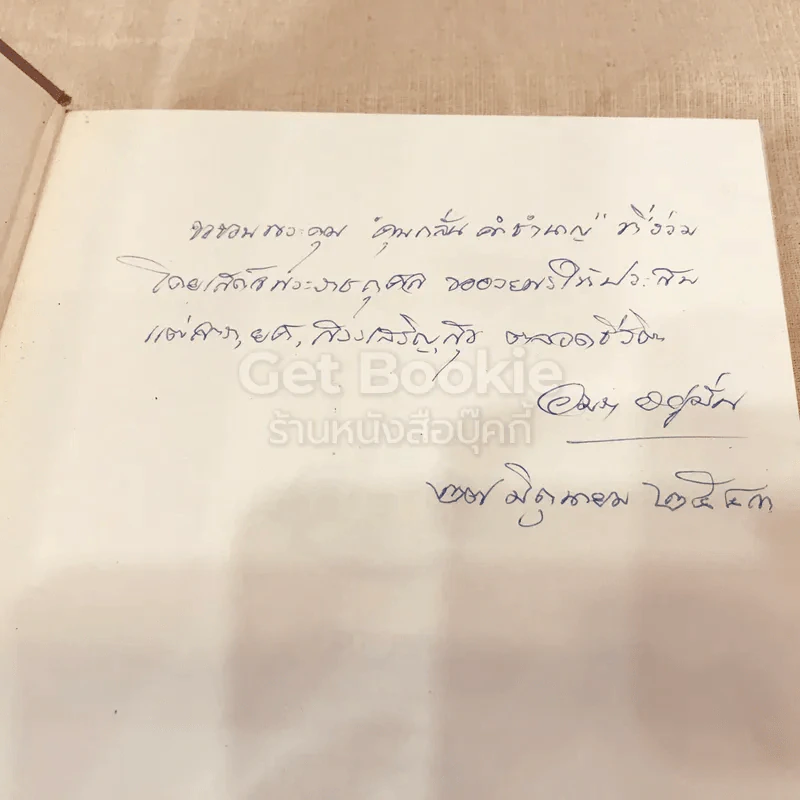 ขอขอบพระคุณ "คุณกลั่น คำชำนาญ" ที่ร่วม
โดยเสด็จพระราชกุศล ขออวยพรให้ประสบ
แต่ลาภ, ยศ, สรรเสริญ, สุข ตลอดชีวิต
Get Bookie
ร้านหนังสือบุ๊คกี้
๒๗ มิถุนายน ๒๕๔๓